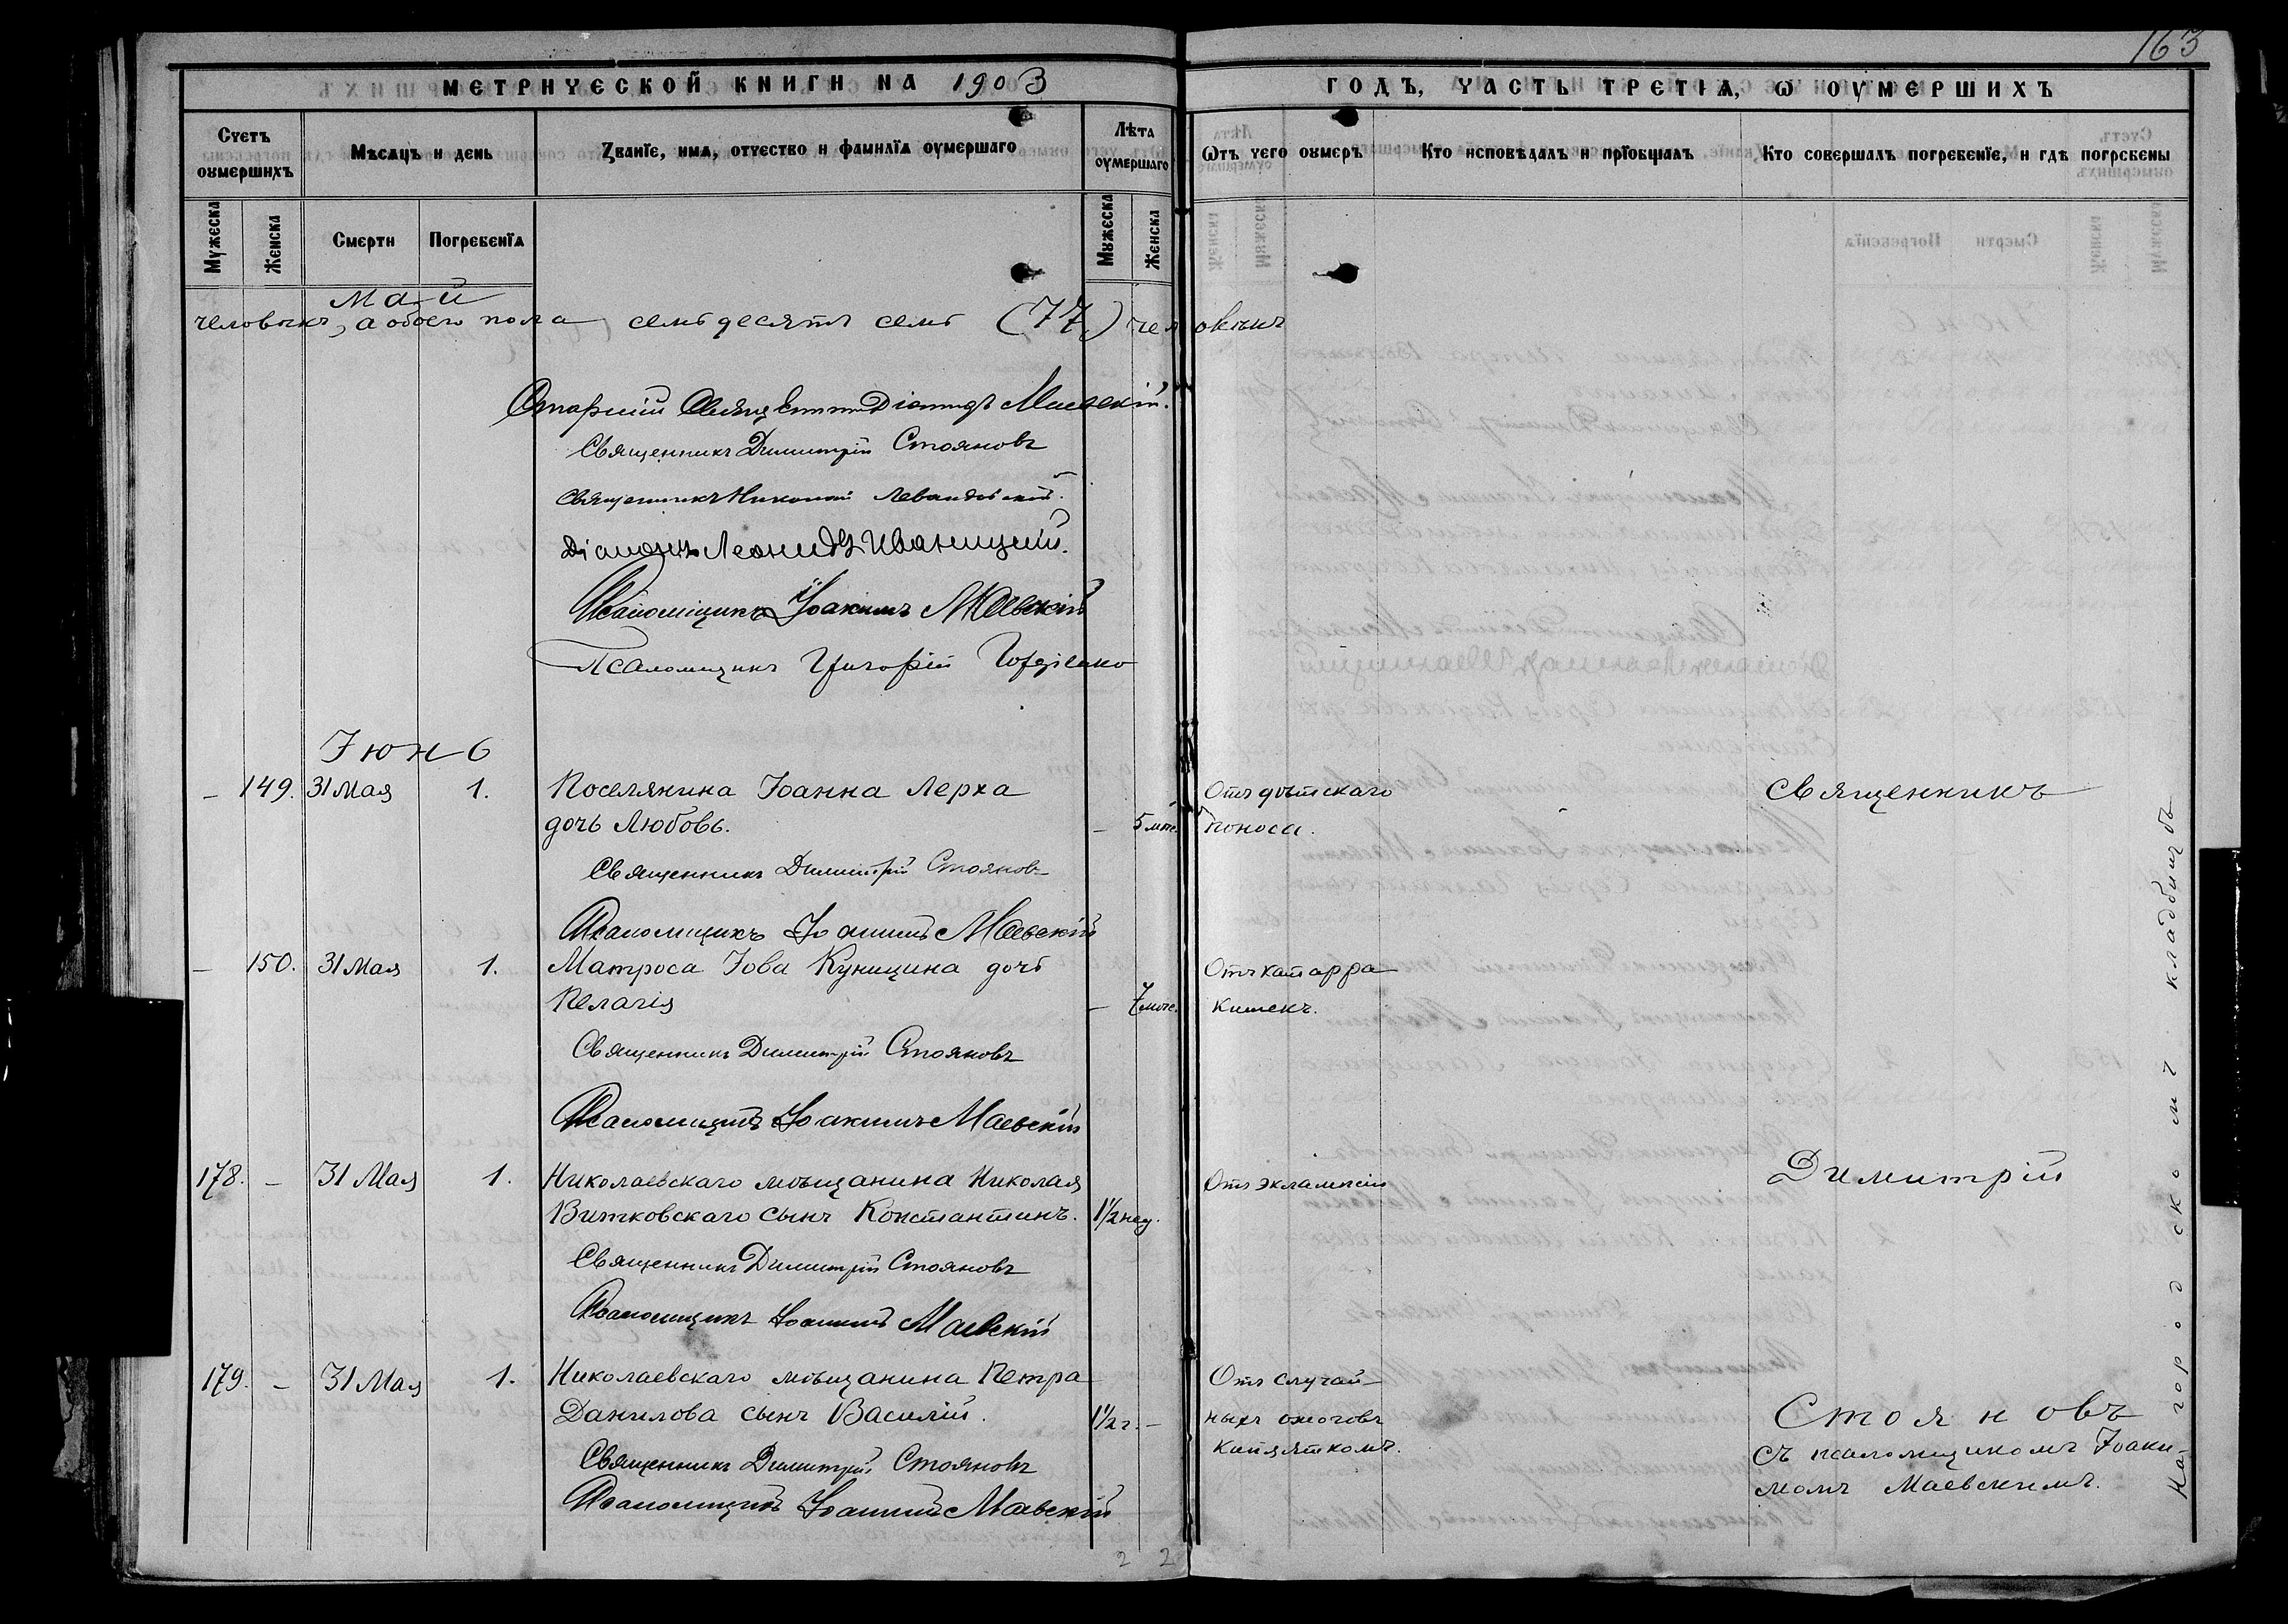 163
МЕТРИЧЕСКОЙ КНИГИ НА 1903
ГОДЪ, ЧАСТЬ ТРЕТІѦ, Ѡ ОУМЕРШИХЪ
Счетъ оумершихъ
Мѣсѧцъ и день
Званїе, имѧ, отчество и фамилїѧ оумершаго
Лѣта оумершаго
Ѿтъ чего оумеръ
Кто исповѣдалъ и прїобщалъ
Кто совершалъ погребенїе, и гдѣ погребены
Мужеска
Женска
Смерти
Погребенїѧ
Мужеска
Женска
Май
человѣкъ, а обоего пола семьдесятъ семь (77) человѣкъ
Старшій Священникъ Діомидъ Маевскій.
Священникъ Димитрій Стояновъ
Священникъ Николай Левандовскій.
Діаконъ Леонидъ Иваницкій.
Псаломщикъ Іоакимъ Маевскій
Псаломщикъ Григорій Гордіенко
Іюнь
– 149. 31 Мая 1. Поселянина Іоанна Лерха Отъ дѣтскаго Священникъ
дочь Любовь. – 5 мѣс. поноса.
Священникъ Димитрій Стояновъ
Псаломщикъ Іоакимъ Маевскій
– 150. 31 Мая 1. Матроса Іова Куницина дочь Отъ катарра
Пелагія – 7 мѣс. кишекъ.
Священникъ Димитрій Стояновъ
Псаломщикъ Іоакимъ Маевскій
178. – 31 Мая 1. Николаевскаго мѣщанина Николая Отъ эклампсіи Димитрій
Витковскаго сынъ Константинъ. 1½ нед.
Священникъ Димитрій Стояновъ
Псаломщикъ Іоакимъ Маевскій
179. – 31 Мая 1. Николаевскаго мѣщанина Петра Отъ случай-
Данилова сынъ Василій. 1½ г. – ныхъ ожоговъ Стояновъ
кипяткомъ. съ псаломщикомъ Іоаки-
Священникъ Димитрій Стояновъ
момъ Маевскимъ.
Псаломщикъ Іоакимъ Маевскій
На городскомъ кладбищѣ
2 2